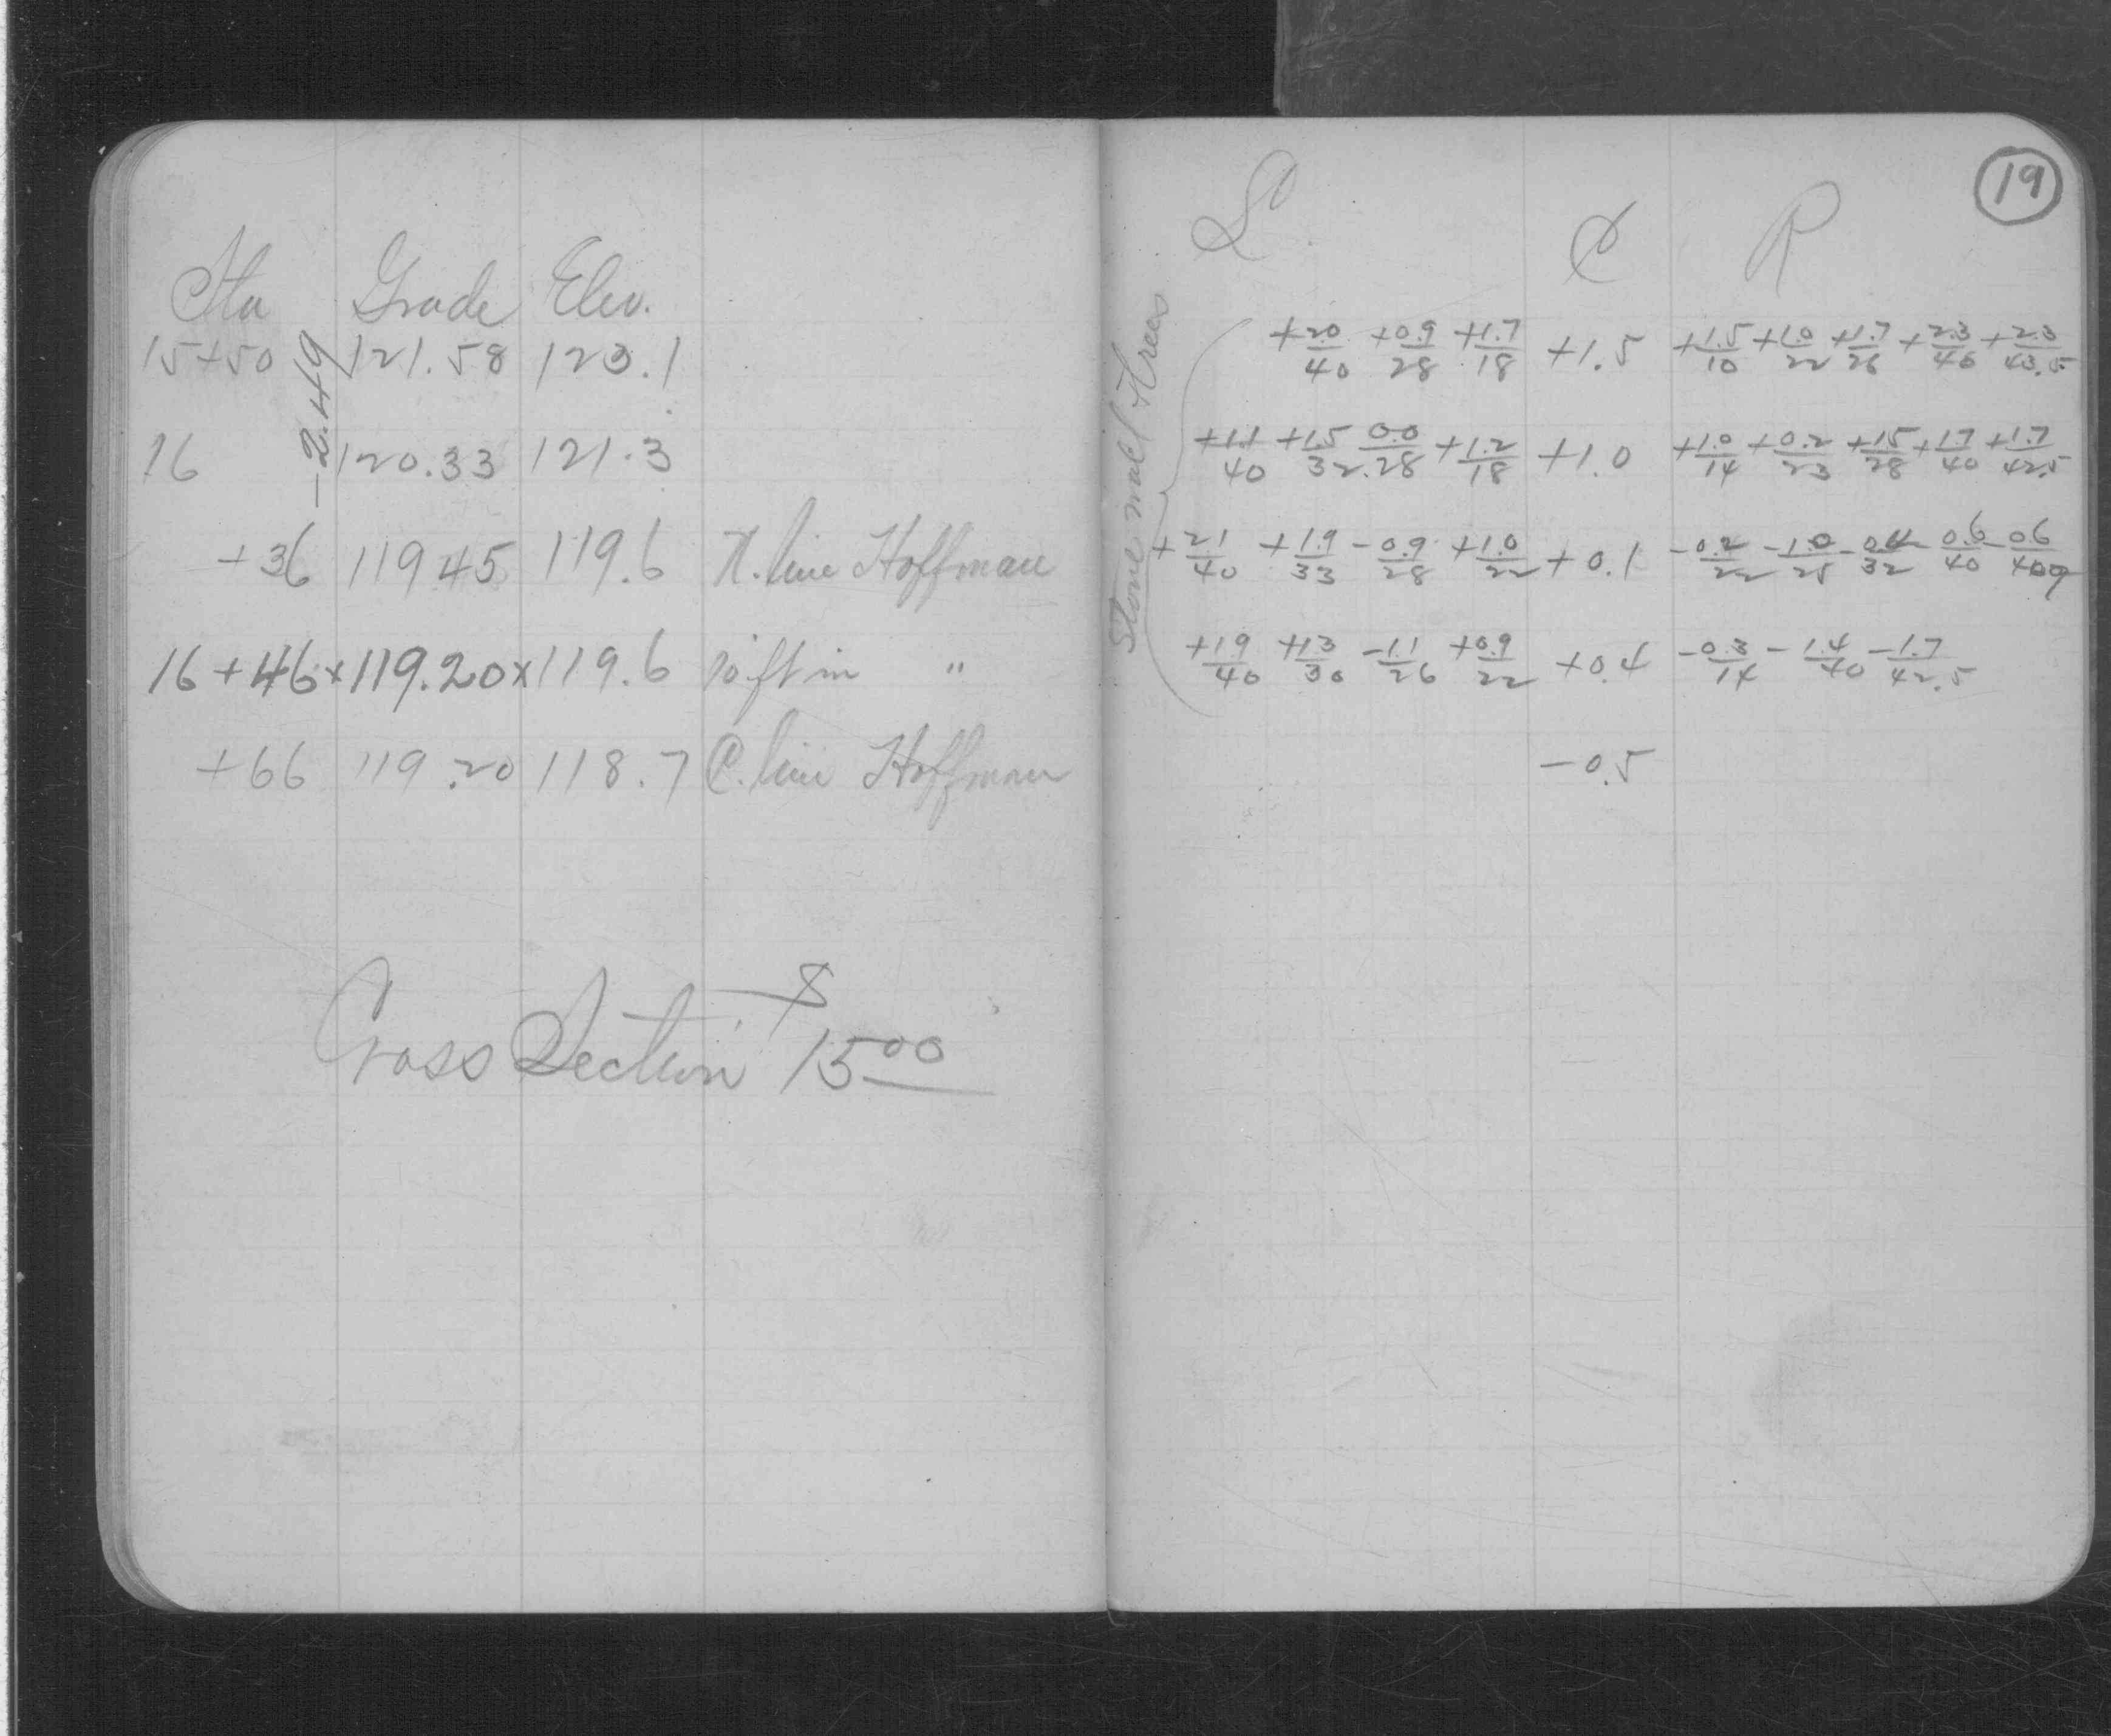 Sta Grade Elev.
15+50 121.58 123.1
-2.49
16 120.33 121.3
+36 119 45 119.6 N. line Hoffman
16+46 x 119.20 x 119.6 10 ft in "
+66 119.20 118.7 C. line Hoffman
Cross Section $ 15 00
19
L ₵ R
Stone
Trees
+2.0/40 +0.9/28 +1.7/18 +1.5 +1.5/10 +1.0/22 +1.7/26 +2.3/40 +2.3/43.5
+1.1/40 +1.5/32 0.0/28 +1.2/18 +1.0 +1.0/14 +0.2/23 +1.5/28 +1.7/40 +1.7/42.5
+2.1/40 +1.9/33 -0.9/28 +1.0/22 +0.1 -0.2/22 -1.0/25 -0.4/32 -0.6/40 -0.6
+1.9/40 +1.3/30 -1.1/26 +0.9/22 +0.4 -0.3/14 -1.4/40 -1.7/42.5
-0.5